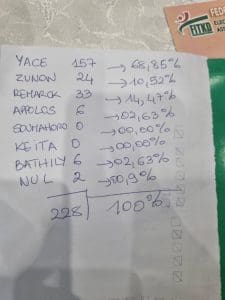 YACE 157 → 68,85%
ZUNON 24 → 10,52%
REMARCK 33 → 14,47%
APPOLOS 6 → 02,63%
SOUMAHORO 0 → 00,00%
KEITA 0 → 00,00%
BATHILY 6 → 02,63%
NUL 2 → 00,9%
228 100%
FEDE
ELEC
FITKD
AS